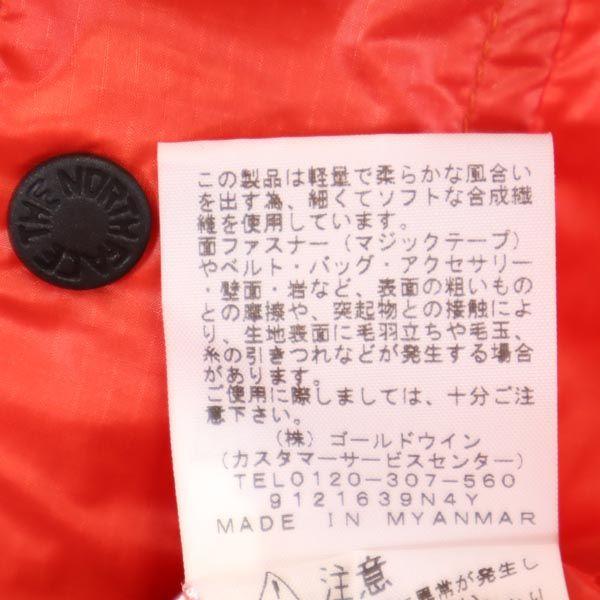 THE NORTH FACE
この製品は軽量で柔らかな風合い
を出す為、細くてソフトな合成繊
維を使用しています。
面ファスナー（マジックテープ）
やベルト・バッグ・アクセサリー
・壁面・岩など、表面の粗いもの
との摩擦や、突起物との接触によ
り、生地表面に毛羽立ちや毛玉、
糸の引きつれなどが発生する場合
があります。
ご使用に際しましては、十分ご注
意下さい。
（株）ゴールドウイン
（カスタマーサービスセンター）
TEL0120-307-560
9121639N4Y
MADE IN MYANMAR
注意
異常が発生し